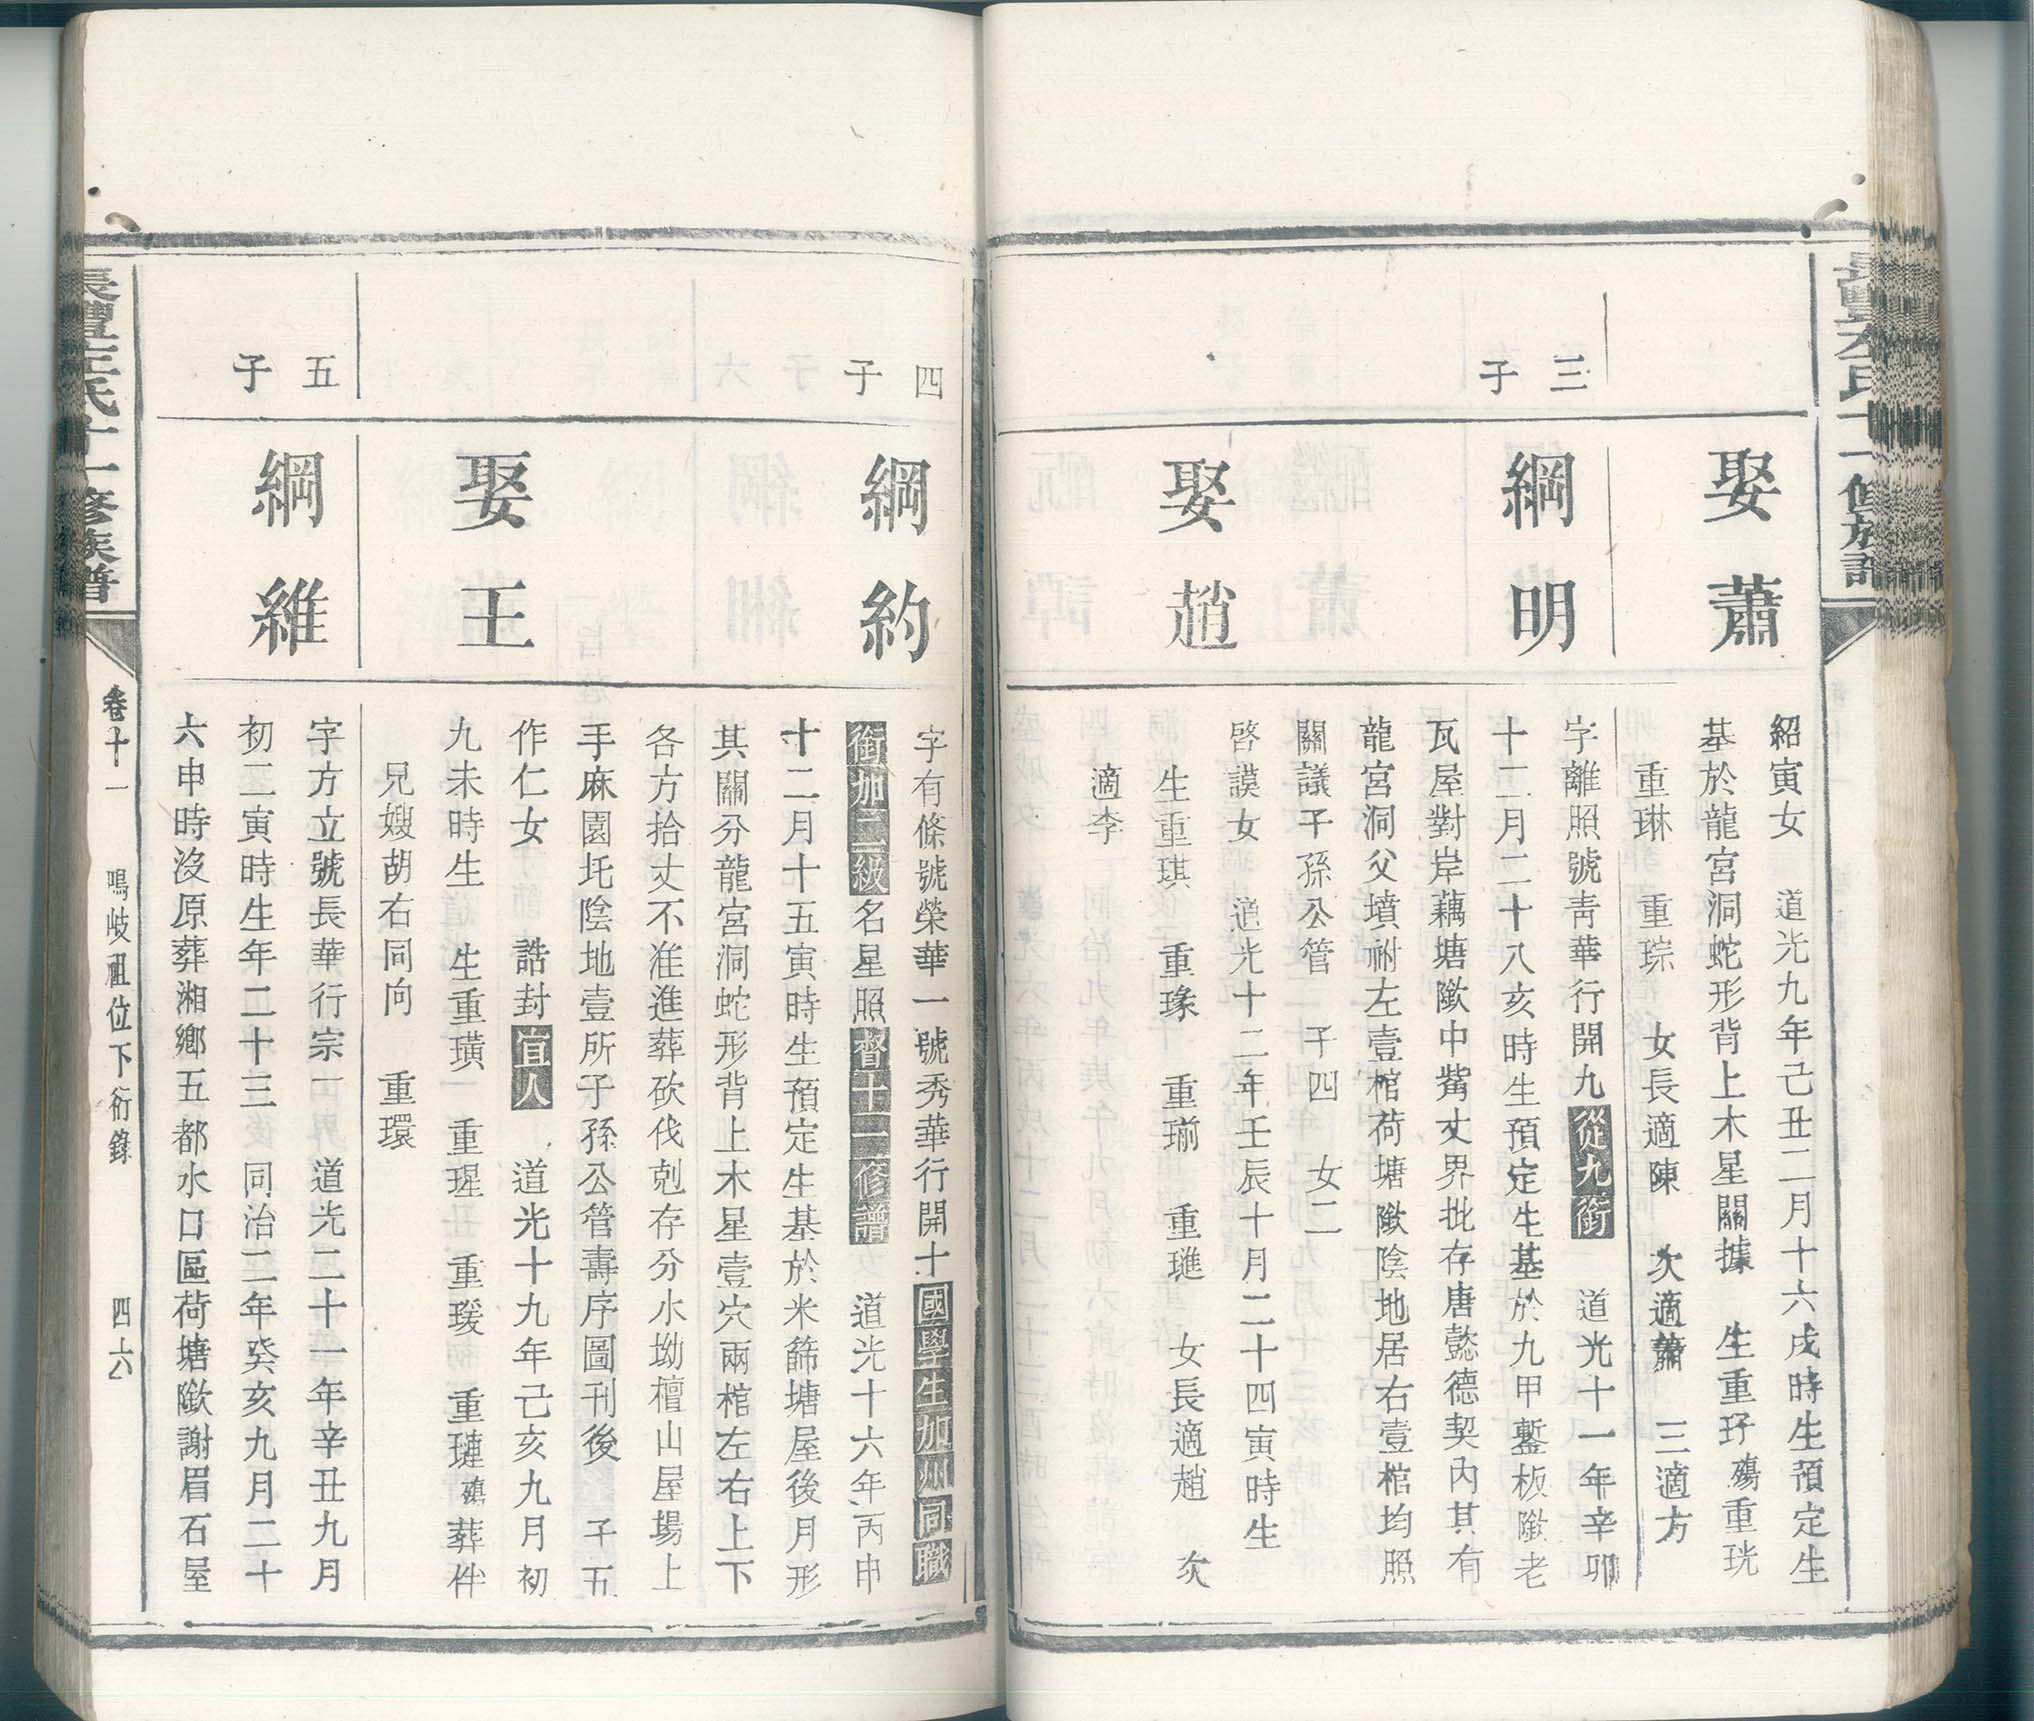 娶蕭
紹寅女　道光九年己丑二月十六戌時生預定生
基於龍宮洞蛇形背上木星關據　生重玗殤重珖
重琳　重琮　女長適陳　次適蕭　三適方
三子
綱明
字離照號青華行開九從九銜　道光十一年辛卯
十二月二十八亥時生預定生基於九甲鏨板坳老
瓦屋對岸藕塘墈中觜丈界批存唐懿德契內其有
龍宮洞父墳祔左壹棺荷塘墈陰地居右壹棺均照
關議子孫公管　子四　女二
娶趙
啓謨女　道光十二年壬辰十月二十四寅時生
生重琪　重瑑　重瑐　重璡　女長適趙　次
適李
四子
綱約
字有條號榮華一號秀華行開十國學生加州同職
銜加二級名星照督十一修譜　道光十六年丙申
十二月十五寅時生預定生基於米篩塘屋後月形
其關分龍宮洞蛇形背上木星壹穴兩棺左右上下
各方拾丈不准進葬砍伐剋存分水坳檀山屋場上
手麻園圫陰地壹所子孫公管壽序圖刊後　子五
娶王
作仁女　誥封宜人　道光十九年己亥九月初
九未時生　生重璜　重瑆　重瑗　重璉殤葬伴
兄嫂胡右同向　重環
五子
綱維
字方立號長華行宗一　道光二十一年辛丑九月
初二寅時生年二十三　同治二年癸亥九月二十
六申時沒原葬湘鄉五都水口區荷塘墈謝眉石屋
長豐左氏十一修族譜
卷十一　鳴岐祖位下衍錄　四六